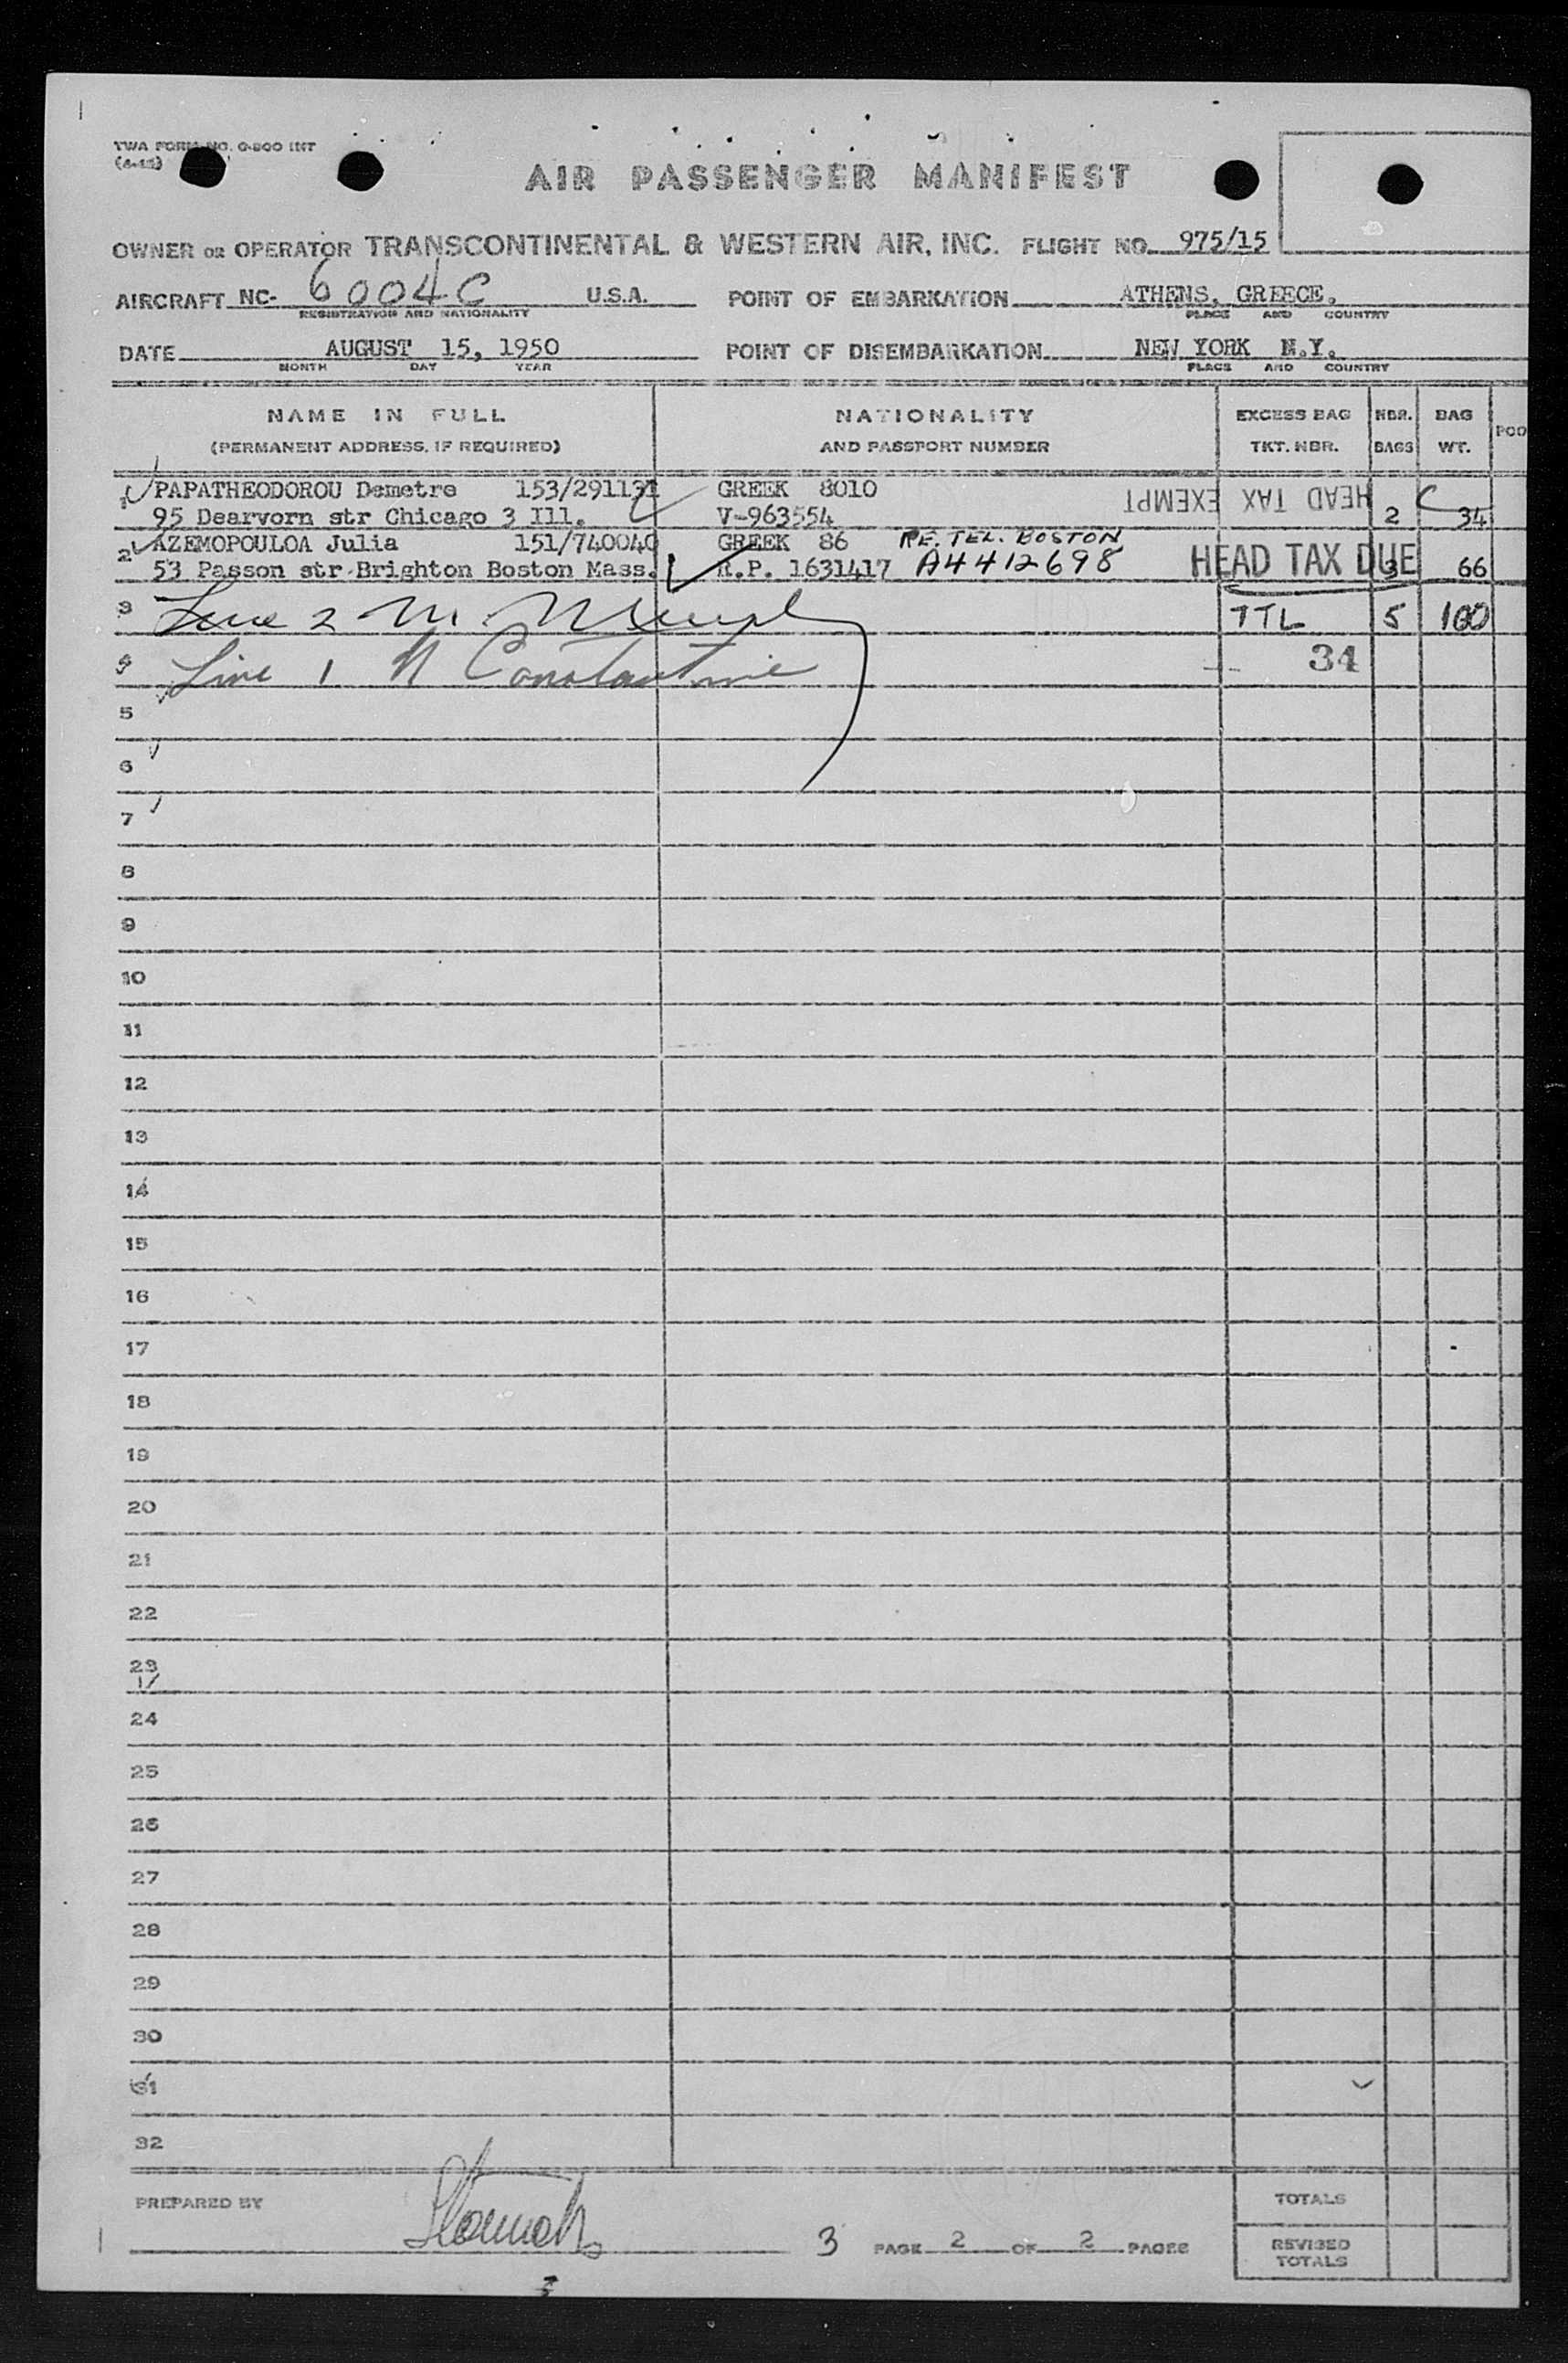 TWA FORM NO. O-800 INT
AIR PASSENGER MANIFEST
OWNER OR OPERATOR TRANSCONTINENTAL & WESTERN AIR, INC. FLIGHT NO. 975/15
AIRCRAFT NC- 6004C U.S.A. POINT OF EMBARKATION ATHENS, GREECE.
REGISTRATION AND NATIONALITY PLACE AND COUNTRY
DATE AUGUST 15, 1950 POINT OF DISEMBARKATION NEW YORK N.Y.
MONTH DAY YEAR PLACE AND COUNTRY
NAME IN FULL NATIONALITY EXCESS BAG NBR. BAG
(PERMANENT ADDRESS, IF REQUIRED) AND PASSPORT NUMBER TKT. NBR. BAGS WT.
1 PAPATHEODOROU Demetre 153/291131 GREEK 8010 HEAD TAX EXEMPT
95 Dearvorn str Chicago 3 Ill. V-963554 2 34
2 AZEMOPOULOA Julia 151/740040 GREEK 86 RE. TEL. BOSTON
53 Passon str Brighton Boston Mass. R.P. 1631417 A4412698 HEAD TAX DUE 3 66
3 Line 2 M. TTL 5 100
4 Line 1 N Constantine 34
5
6
7
8
9
10
11
12
13
14
15
16
17
18
19
20
21
22
23
24
25
26
27
28
29
30
31
32
PREPARED BY TOTALS
3 PAGE 2 OF 2 PAGES REVISED
TOTALS